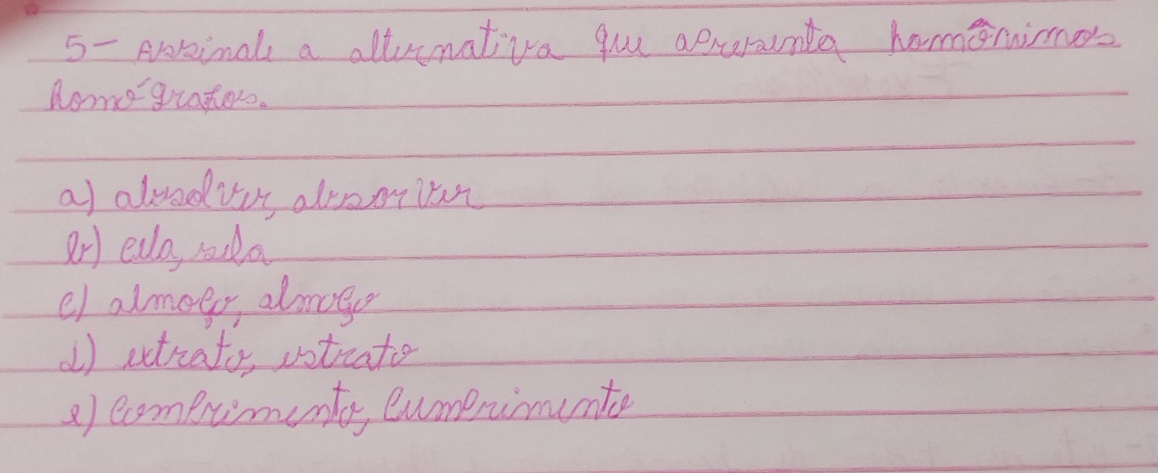 5- Assinale a alternativa que apresenta homônimos
homógrafos.
a) absolver, absorver
b) cela, sela
c) almoço, almoço
d) extrato, estrato
e) comprimento, cumprimento